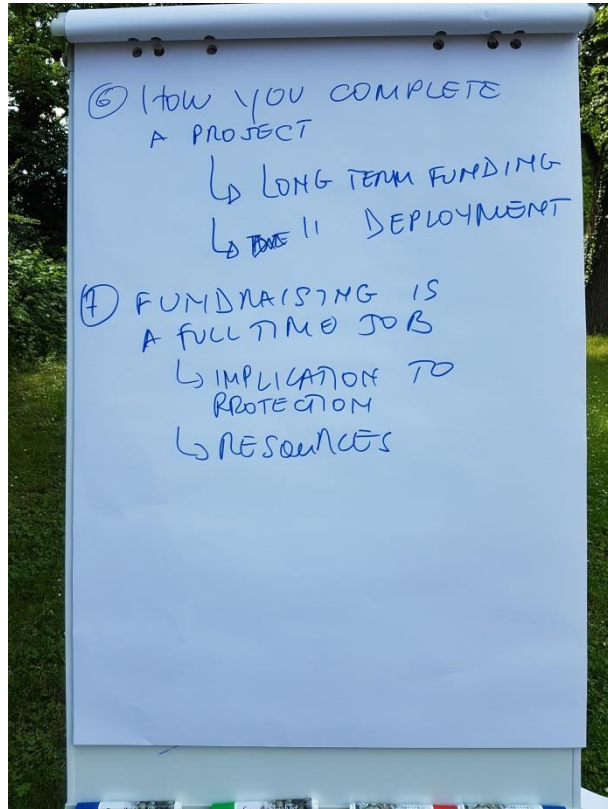 ⑥ HOW YOU COMPLETE
A PROJECT
↳ LONG TERM FUNDING
↳ " DEPLOYMENT
⑦ FUNDRAISING IS
A FULL TIME JOB
↳ IMPLICATION TO
PROTECTION
↳ RESOURCES